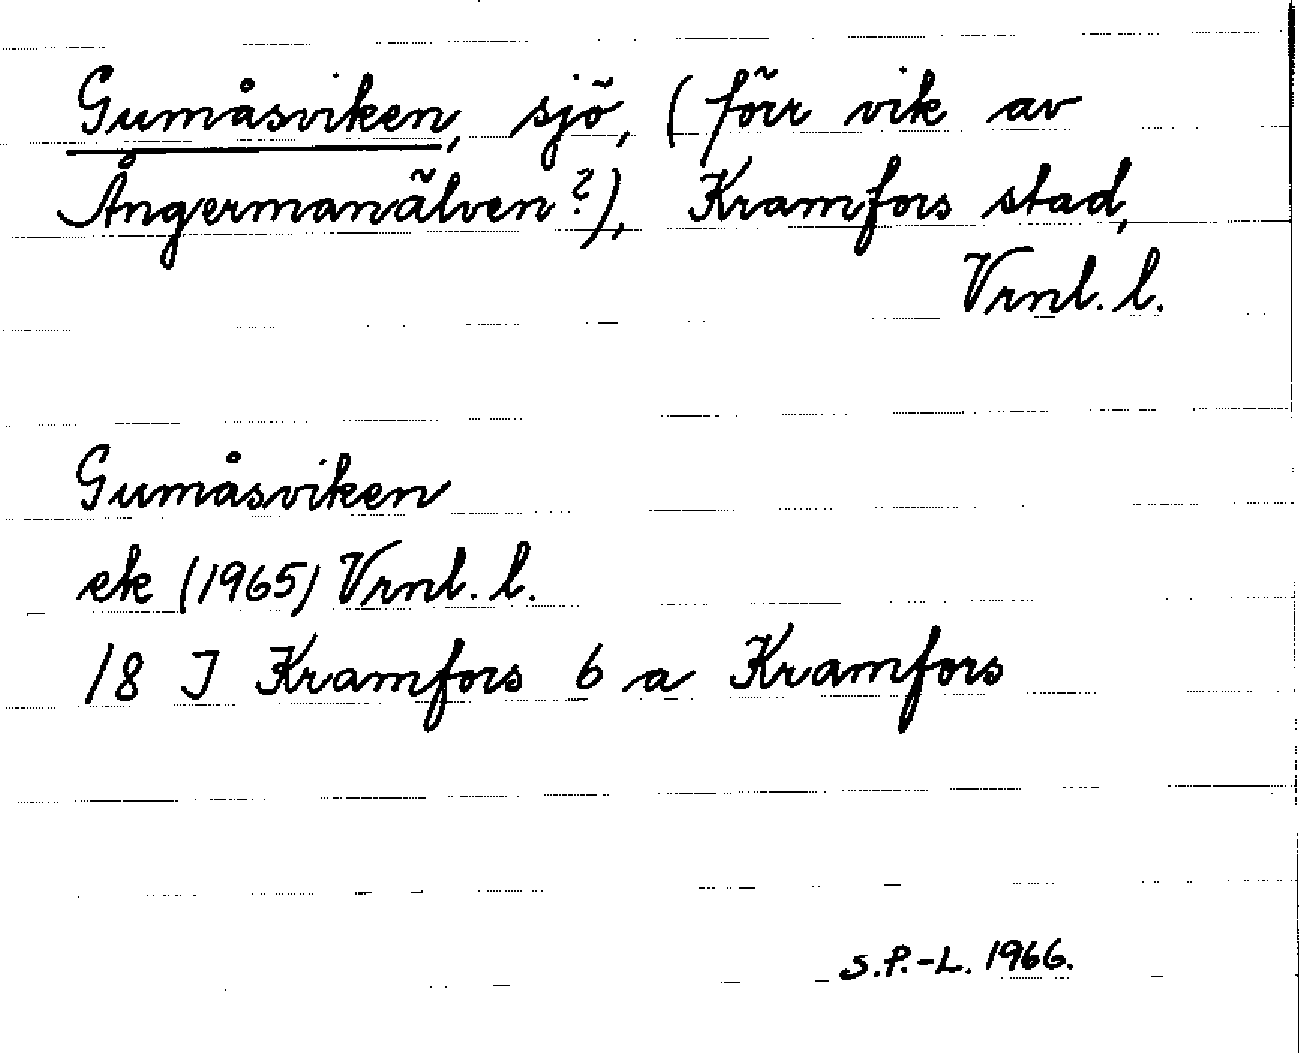 Gumåsviken, sjö, (förr vik av
Ångermanälven?), Kramfors stad,
Vrnl. l.
Gumåsviken
ek (1965) Vrnl. l.
18 I Kramfors 6 a Kramfors
S.P.-L. 1966.